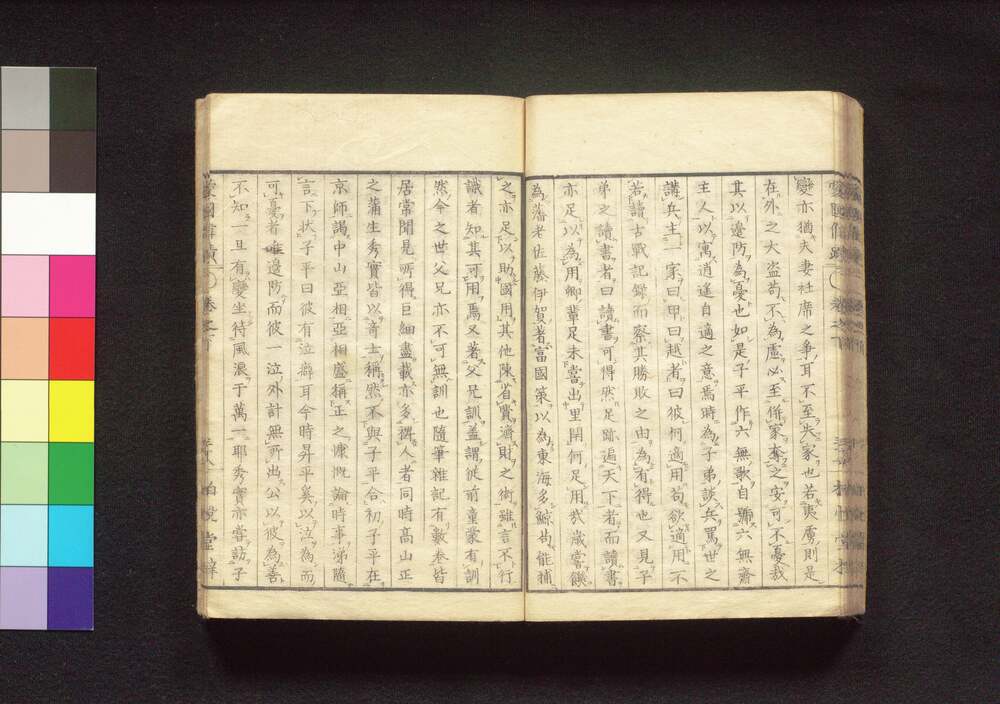 變亦猶夫妻社席之爭耳不至失家也若夷虜則是
在外之大盜苟不為慮必至併家奪之安可不憂哉
其以邊防為憂也如是子平作六無歌自號六無齋
主人以寓逍遙自適之意焉時為子弟談兵罵世之
講兵主一家曰甲曰越者曰彼何適用苟欲適用不
若讀古戰記錄而察其勝敗之由為有得也又見子
弟之讀書者曰讀書可得然足跡遍天下者而讀書
亦足以為用卿輩足未嘗出里閈何足用哉歲嘗饑
為藩老佐藤伊賀著富國策以為東海多鯨苟能捕
之亦足以助國用其他陳省費濟財之術雖言不行
識者知其可用焉又著父兄訓蓋謂從前童蒙有訓
然今之世父兄亦不可無訓也隨筆雜記有數卷皆
居常聞見所得巨細盡載亦多擇人者同時高山正
之蒲生秀實皆以奇士稱然不與子平合初子平在
京師謁中山亞相亞相盛稱正之慷慨論時事涕隨
言下狀子平曰彼有泣癖耳今時昇平奚以泣為而
可憂者唯邊防而彼一泣外計無所出公以彼為善
不知一旦有變坐待風浪于萬一耶秀實亦嘗訪子